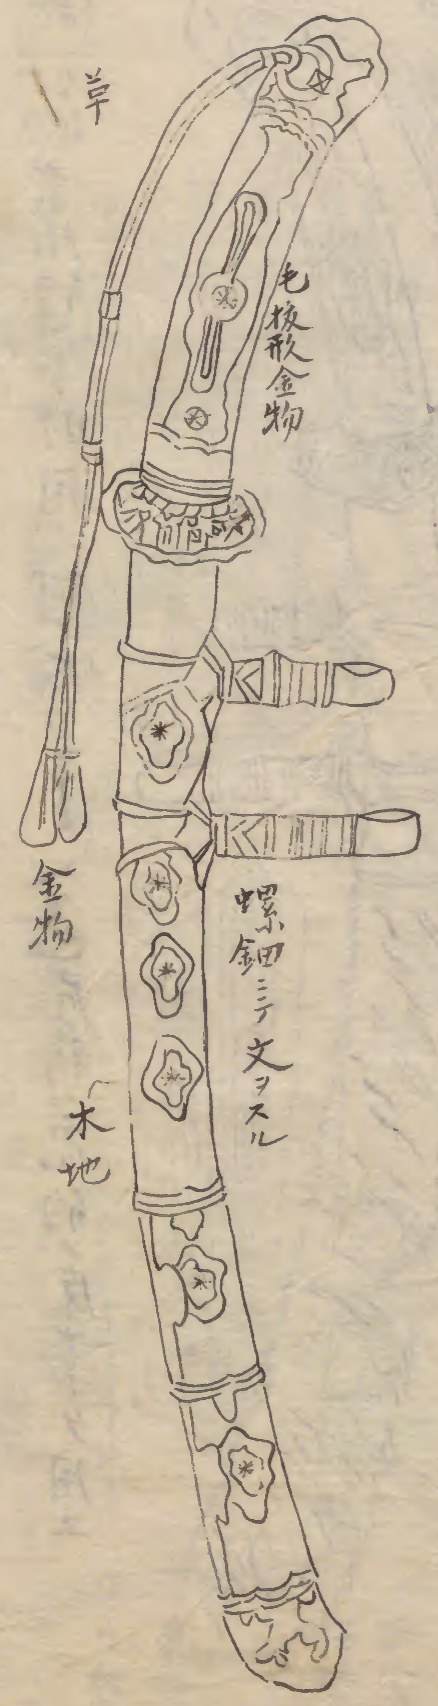 毛抜形金物
螺鈿ニテ文ヲスル
金物
木地